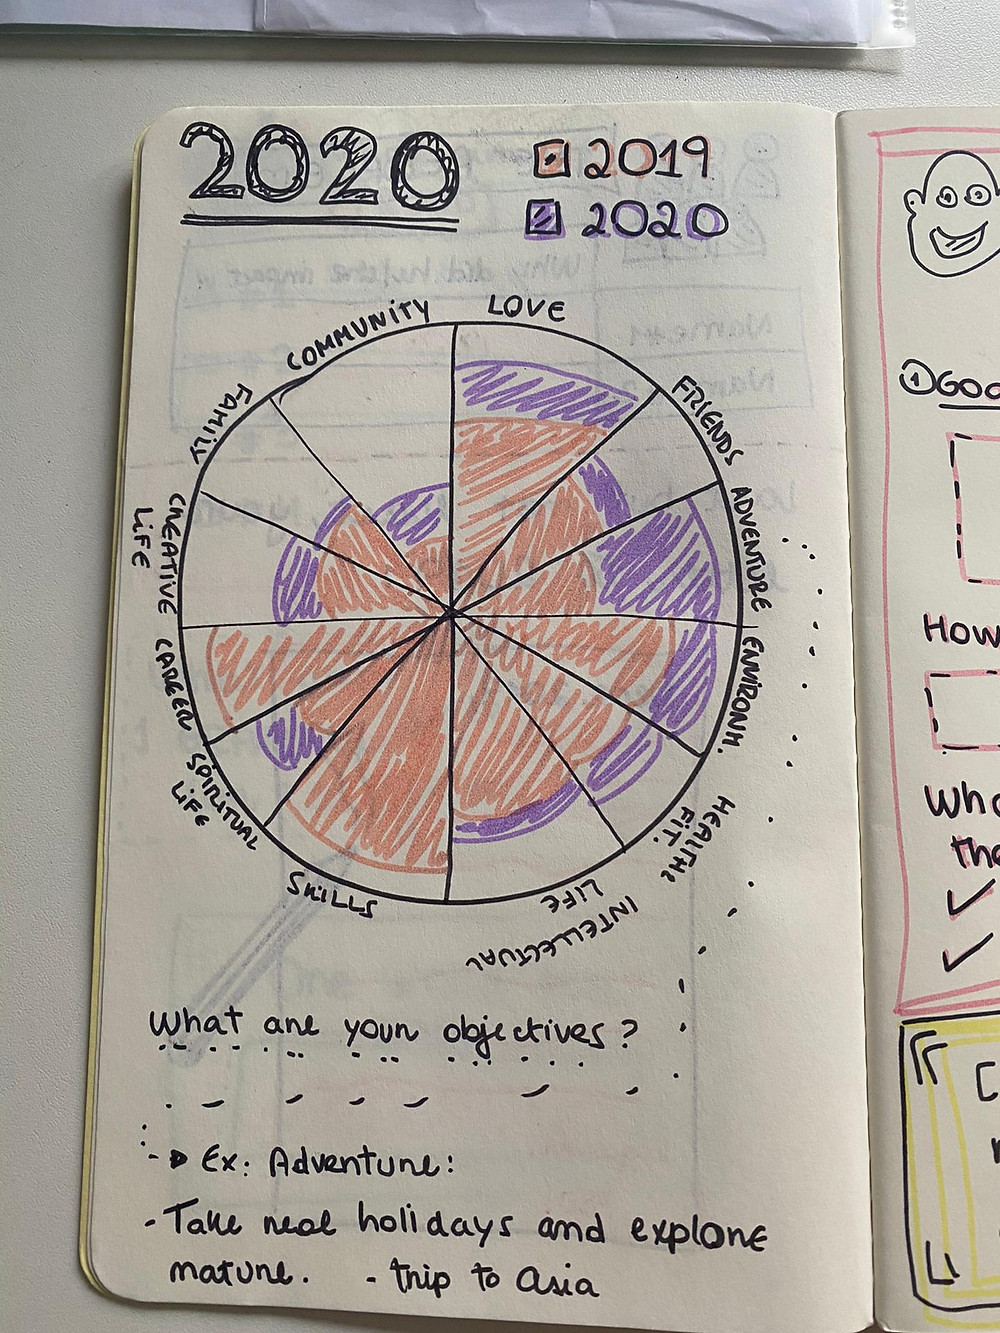 2020
2019
2020
COMMUNITY
LOVE
FRIENDS
ADVENTURE
ENVIRONM.
HEALTH &
FIT.
INTELLECTUAL
LIFE
SKILLS
SPIRITUAL
LIFE
CAREER
CREATIVE
LIFE
FAMILY
What are your objectives?
Ex: Adventure:
- Take real holidays and explore
nature. - trip to asia
① GOO
HOW
Wha
the